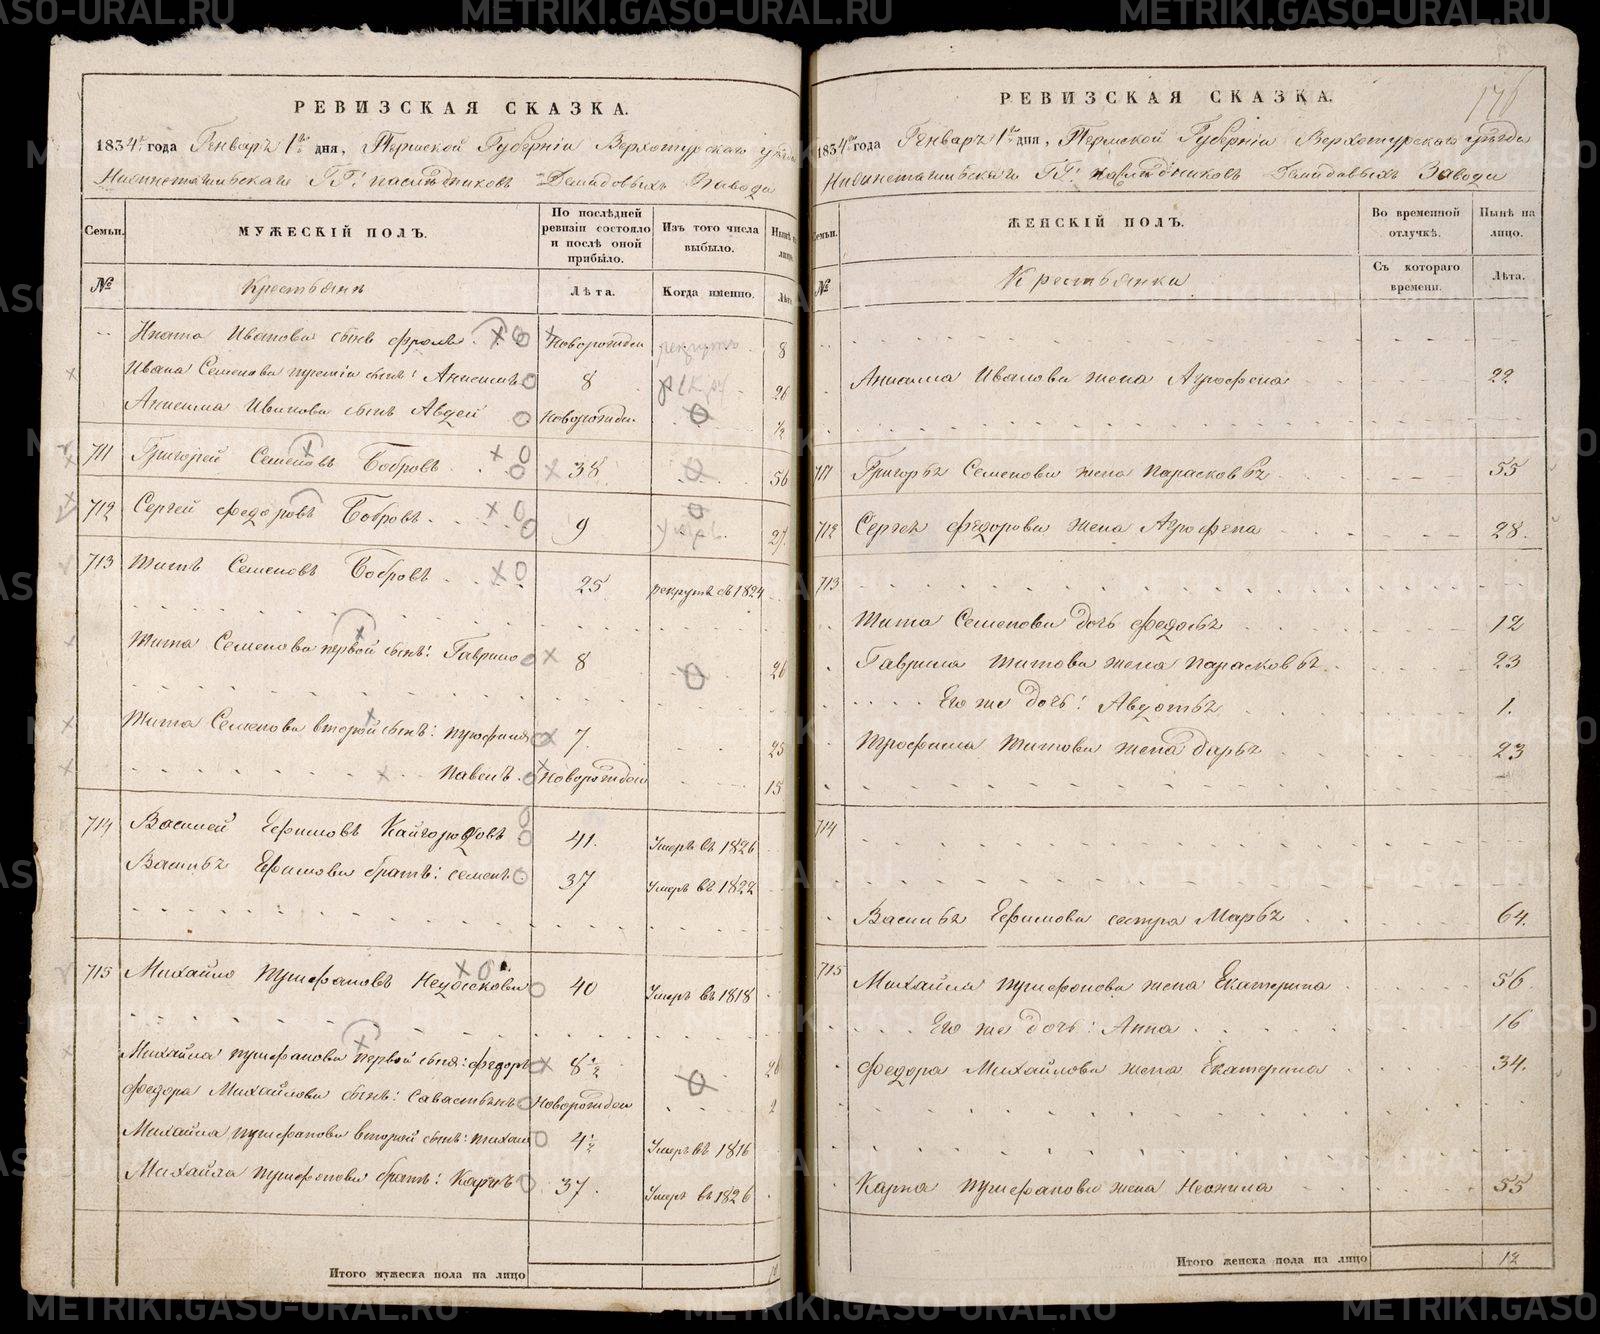 METRIKI.GASO-URAL.RU
РЕВИЗСКАЯ СКАЗКА.
1834 года Генварь 1 дня, Пермской Губерніи Верхотурскаго
Нижнетагильскаго ГГ: наслѣдниковъ Демидовыхъ Завода
Семьи.
МУЖЕСКІЙ ПОЛЪ.
По послѣдней ревизіи состояло и послѣ оной прибыло.
Изъ того числа выбыло.
№
Крестьянъ
Лѣта.
Когда именно.
Иванова сынъ Фролъ новорожден 8
Ивана Семенова третій сынъ: Анисимъ 8 26
Анисима Иванова сынъ Авдей новорожден ½
711 Григорей Семеновъ Бобровъ 38 56
712 Сергей Федоровъ Бобровъ 9 27
713 Титъ Семеновъ Бобровъ 25 рекрутъ въ 1824
Тита Семенова первой сынъ: Гаврило 8 26
Тита Семенова второй сынъ: 7 25
Павелъ новорожден 15
714 Василей Ефимовъ Кайгородовъ 41. Умеръ въ 1826
Василья Ефимова братъ: Семенъ 37 Умеръ въ 1822
715 Михайло 40 Умеръ въ 1818
Михайла первой сынъ: Федоръ 8½ 26
Федора Михайлова сынъ: Савастьянъ новорожден 2
Михайла второй сынъ: 4½ Умеръ въ 1816
Михайла братъ: Карпъ 37. Умеръ въ 1826
Итого мужеска пола на лицо
176
РЕВИЗСКАЯ СКАЗКА.
1834 года Генварь 1 дня, Пермской Губерніи Верхотурскаго уѣзда
Нижнетагильскаго ГГ: наслѣдниковъ Демидовыхъ Завода
Семьи.
ЖЕНСКІЙ ПОЛЪ.
Во временной отлучкѣ.
Нынѣ на лицо.
№
Крестьянка
Съ котораго времени.
Лѣта.
Анисима Иванова жена Агрофена 22
711 Григорья Семенова жена Парасковья 55
712 Сергея Федорова жена Агрофена 28.
713
Тита Семенова дочь Федосья 12
Гаврила Титова жена Парасковья 23
Его же дочь: Авдотья 1.
Трофима Титова жена Дарья 23
714
Василья Ефимова сестра Марья 64.
715 Михайла жена Екатерина 56
Его же дочь: Анна 16
Федора Михайлова жена Екатерина 34.
Карпа жена Неонила 55
Итого женска пола на лицо 12